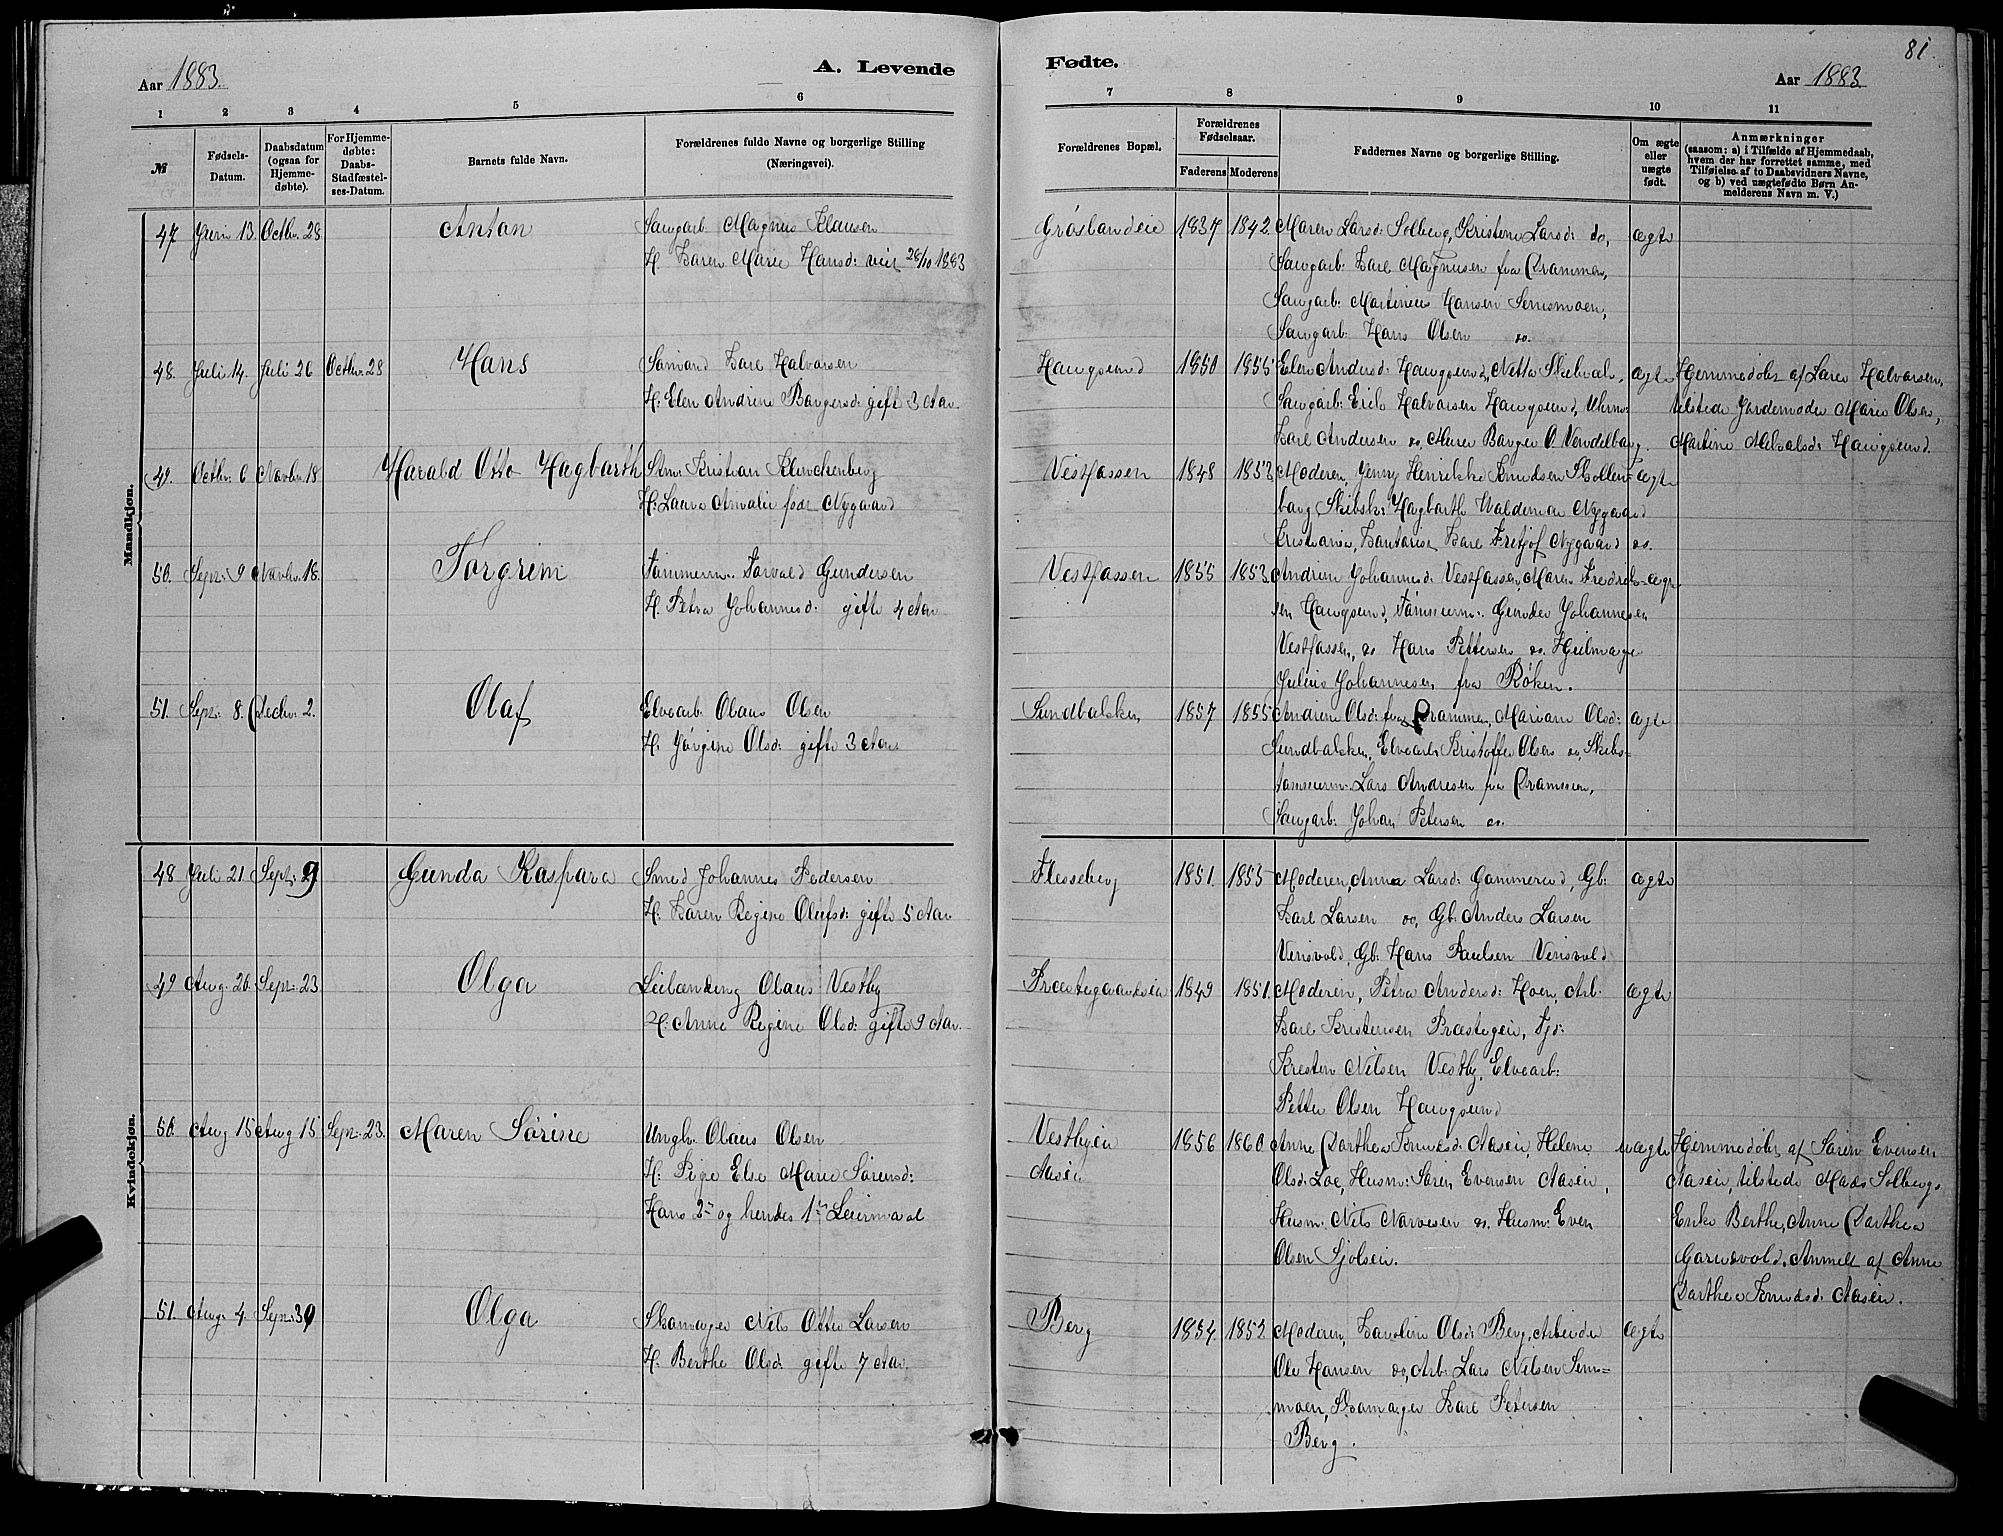 81.
Aar 1883.
A. Levende
Fødte.
Aar 1883
1 2 3 4 5 6 7 8 9 10 11
№
Fødsels-
Datum.
Daabsdatum
(ogsaa for
Hjemme-
døbte).
For Hjemme-
døbte:
Daabs-
Stadfæstel-
ses-Datum.
Barnets fulde Navn.
Forældrenes fulde Navne og borgerlige Stilling
(Næringsvei).
Forældrenes Bopæl.
Forældrenes
Fødselsaar.
Faderens Moderens
Faddernes Navne og borgerlige Stilling.
Om ægte
eller
uægte
født.
Anmærkninger
(saasom: a) i Tilfælde af Hjemmedaab,
hvem der har forrettet samme, med
Tilføielse af to Daabsvidners Navne,
og b) ved uægtefødte Børn An-
melderens Navn m. V.)
Mandkjøn.
47 Juni 13. Octbr. 28 Anton
Saugarb. Magnus Klausen
H. Karen Marie Hansd: viet 28/10 1883
Grøslandeie 1837 1842.
Maren Larsd: Solberg, Kristine Larsd: do,
Saugarb. Karl Magnusen fra Drammen,
Saugarb. Martinius Hansen Semsmoen,
Saugarb. Hans Olsen do.
ægte
48. Juli 14. Juli 26 Octbr. 28 Hans
Sømand Karl Halvorsen
H. Elen Andrine Bangersd: gift 3 Aar
Haugsund 1850 1855
Elen Andersd: Haugsund, Netta
Saugarb. Erik Halvorsen Haugsund, Uhrm:
Karl Andersen do, Murer Banger O. Vendelborg.
ægte
Hjemmedøbt af Karen Halvorsen,
tilstede Jordemoder Maren Olsen,
Martine Haugsund.
49. Octbr. 6 Novbr. 18 Harald Otto Hagbarth
Stm: Kristian Klinckenberg
H. Laura Amalie født Nygaard
Vestfossen 1848 1853,
Moderen, Jenny Henrikke Knudsen Skollen-
borg, Skibsk: Hagbarth Waldemar Nygaard
Kristiania, Kontorist Karl Fritjof Nygaard do.
ægte
50. Septr: 9 Novbr. 18. Torgrim
Tømmerm. Torvald Gundersen
H. Petra Johannesd: gifte 4 Aar
Vestfossen 1855 1853.
Andrine Johannesd: Vestfossen, Maren Fredrik-
sen Haugsund, Tømmerm: Gunder Johannesen
Vestfossen, do Hans Pettersen do. Hjulmager
Julius Johannesen fra Røken.
ægte
51. Septr: 8. Decbr: 2. Olaf
Elvearb. Olaus Olsen
H. Jørgine Olsd: gifte 3 Aar
Sundbakken 1857 1855
Andrine Olsd: fra Drammen, Mariane Olsd:
Sundbakken, Elvearb. Kristoffer Olsen do, Skibs-
tømmerm. Lars Andresen fra Drammen,
Saugarb. Johan Petersen do.
ægte
Kvindekjøn.
48 Juli 21 Septr: 9 Gunda Kaspara
Smed Johannes Pedersen
H: Karen Regine Olufsd: gifte 5 Aar
Flesseberg 1851. 1855
Moderen, Anna Larsd: Gommerud, Gb:
Karl Larsen do, Gb. Anders Larsen
Verisvold, Gb. Hans Paulsen Verisvold
ægte
49 Aug. 26. Septr: 23 Olga
Leilænding Olaus Vestby
H. Anne Regine Olsd: gifte 9 Aar.
Præstegaardseie 1849 1851.
Moderen, Petra Andersd: Hoen, Arb.
Karl Kristensen Præstegeie, Tjd:
Kresten Nilsen Vestby, Elvearb:
Petter Olsen Haugsund
ægte
50. Aug 15 Aug 15 Septr: 23. Maren Sørine
Ungk. Olaus Olsen
H. Pige Else Marie Sørensd:
Hans 2det og hendes 1ste Leiermaal
Vestbyeie
Aaseie
1856 1860
Anne Dorthea Knudsd. Aaseie, Helene
Olsd. Loe, Husm: Søren Evensen Aaseie,
Husm. Nils Narvesen do. Husm: Even
Olsen Sjolseie.
uægte
Hjemmedøbt af Søren Evensen
Aaseie, tilstede Mads Solbergs
Enke Berthe, Anne Dorthea
Garnsvold. Anmelt af Anne
Dorthea Knudsd: Aaseie.
51. Aug. 4. Septr: 30 Olga
Skomager Nils Otto Larsen
H. Berthe Olsd: gifte 7 Aar.
Berg 1854. 1852.
Moderen, Karoline Olsd: Berg, Arbeider
Ole Hansen do, Arb. Lars Nilsen Sems-
moen, Skomager Karl Petersen
Berg.
ægte